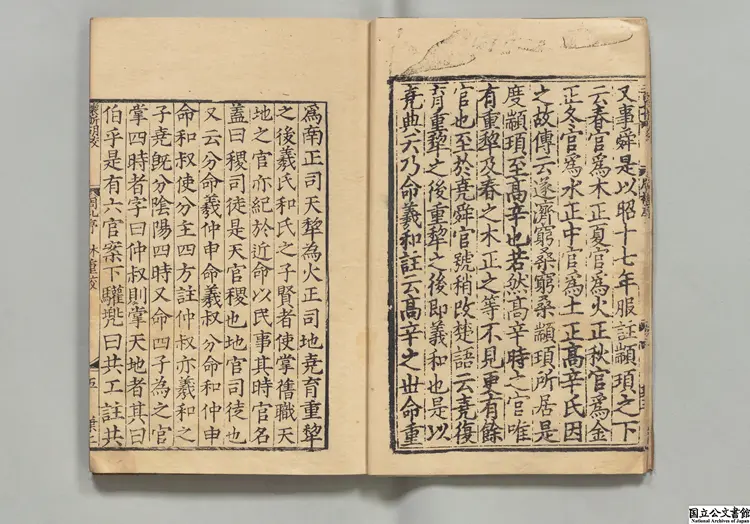 又事舜是以昭十七年服註顓頊之下
云春官為木正夏官為火正秋官為金
正冬官為水正中官為土正高辛氏因
之故傳云遂濟窮桑窮桑顓頊所居是
度顓頊至高辛也若然高辛時之官唯
有重犂及春之木正之等不見更有餘
官也至於堯舜官號稍改楚語云堯復
育重犂之後重犂之後即羲和也是以
堯典云乃命羲和註云高辛之世命重
爲南正司天犂為火正司地堯育重犂
之後羲氏和氏之子賢者使掌舊職天
地之官亦紀於近命以民事其時官名
蓋曰稷司徒是天官稷也地官司徒也
又云分命羲仲申命羲叔分命和仲申
命和叔使分主四方註仲叔亦羲和之
子堯旣分陰陽四時又命四子為之官
掌四時者字曰仲叔則掌天地者其曰
伯乎是有六官案下驩兜曰共工註共
国立公文書館
National Archives of Japan